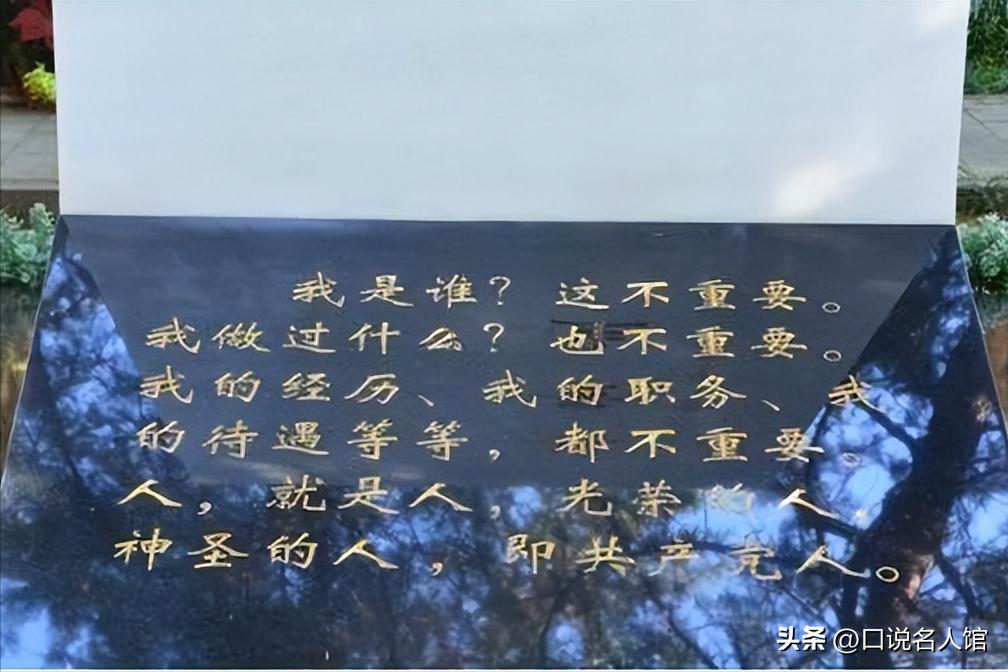 我是谁？这不重要。
我做过什么？也不重要。
我的经历、我的职务、我
的待遇等等，都不重要。
人，就是人，光荣的人，
神圣的人，即共产党人。
头条 @口说名人馆